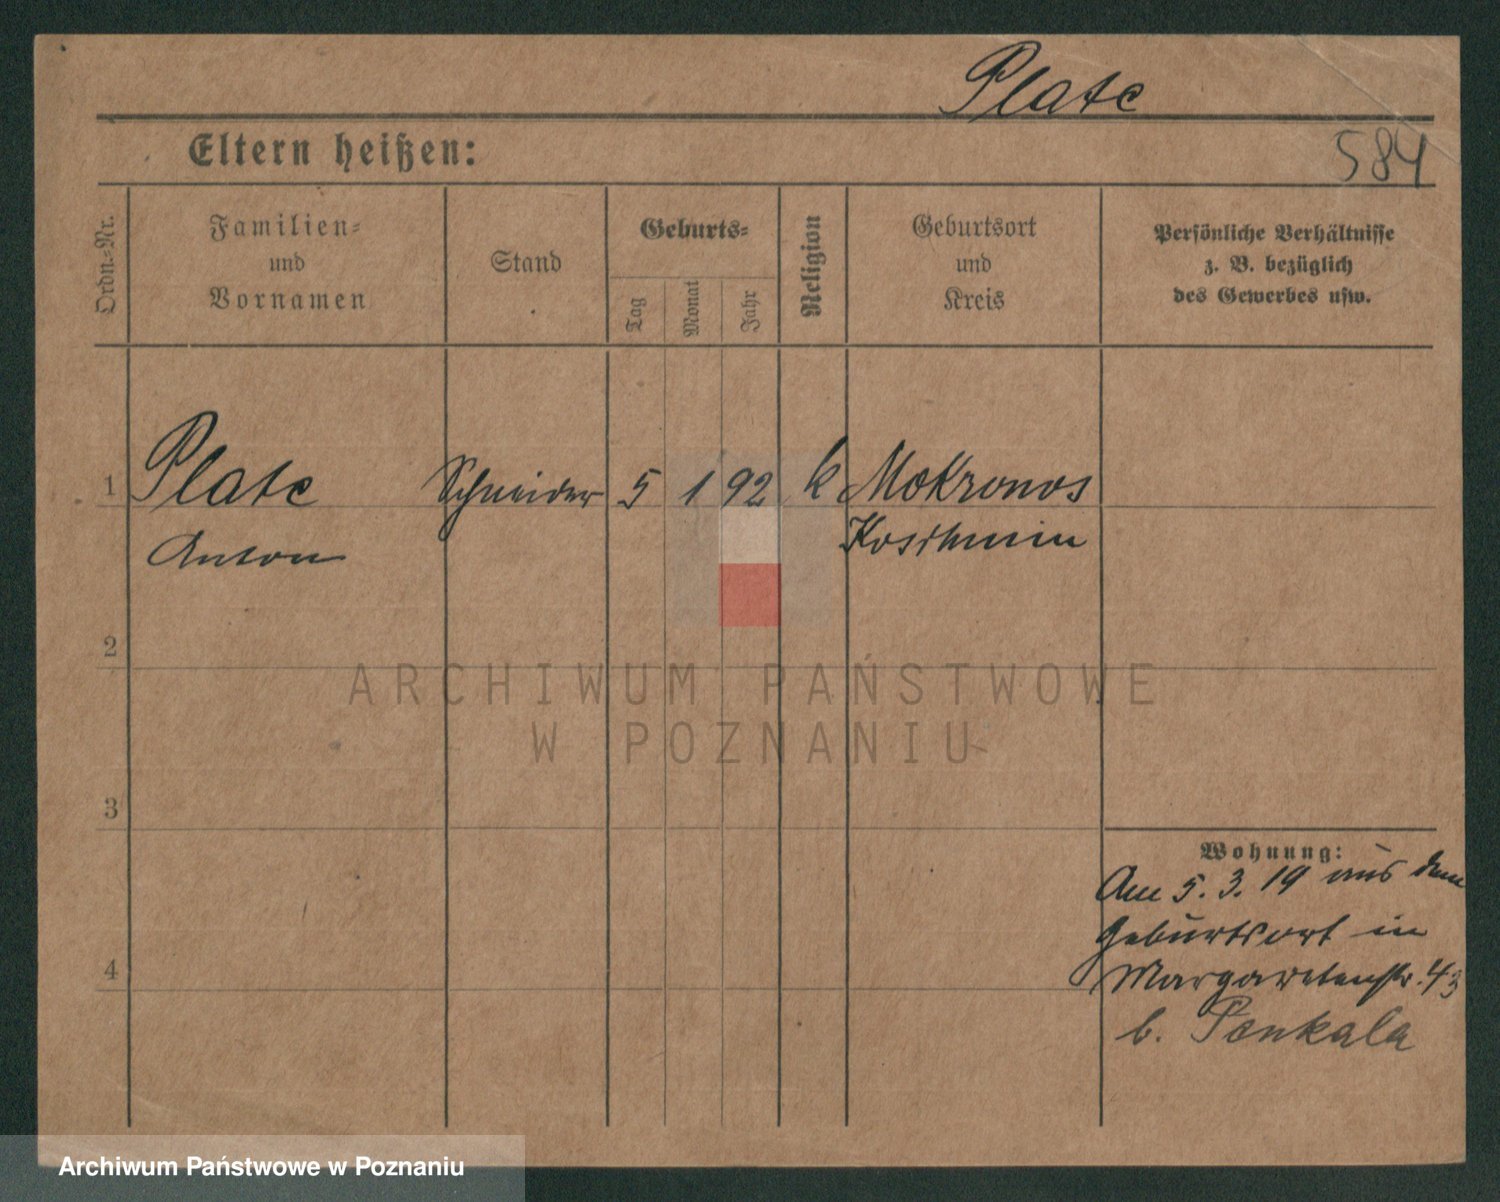 Plate
Eltern heißen:
584
Ordn.-Nr.
Familien-
und
Vornamen
Stand
Geburts-
Tag
Monat
Jahr
Religion
Geburtsort
und
Kreis
Persönliche Verhältnisse
z. B. bezüglich
des Gewerbes usw.
1 Plate Schneider 5 1 92 k Mokronos
Anton Koschmin
2
ARCHIWUM PAŃSTWOWE
W POZNANIU
3
Wohnung:
Am 5. 3. 19 aus dem
Geburtsort in
4
Margaretenstr. 43
b. Penkala
Archiwum Państwowe w Poznaniu